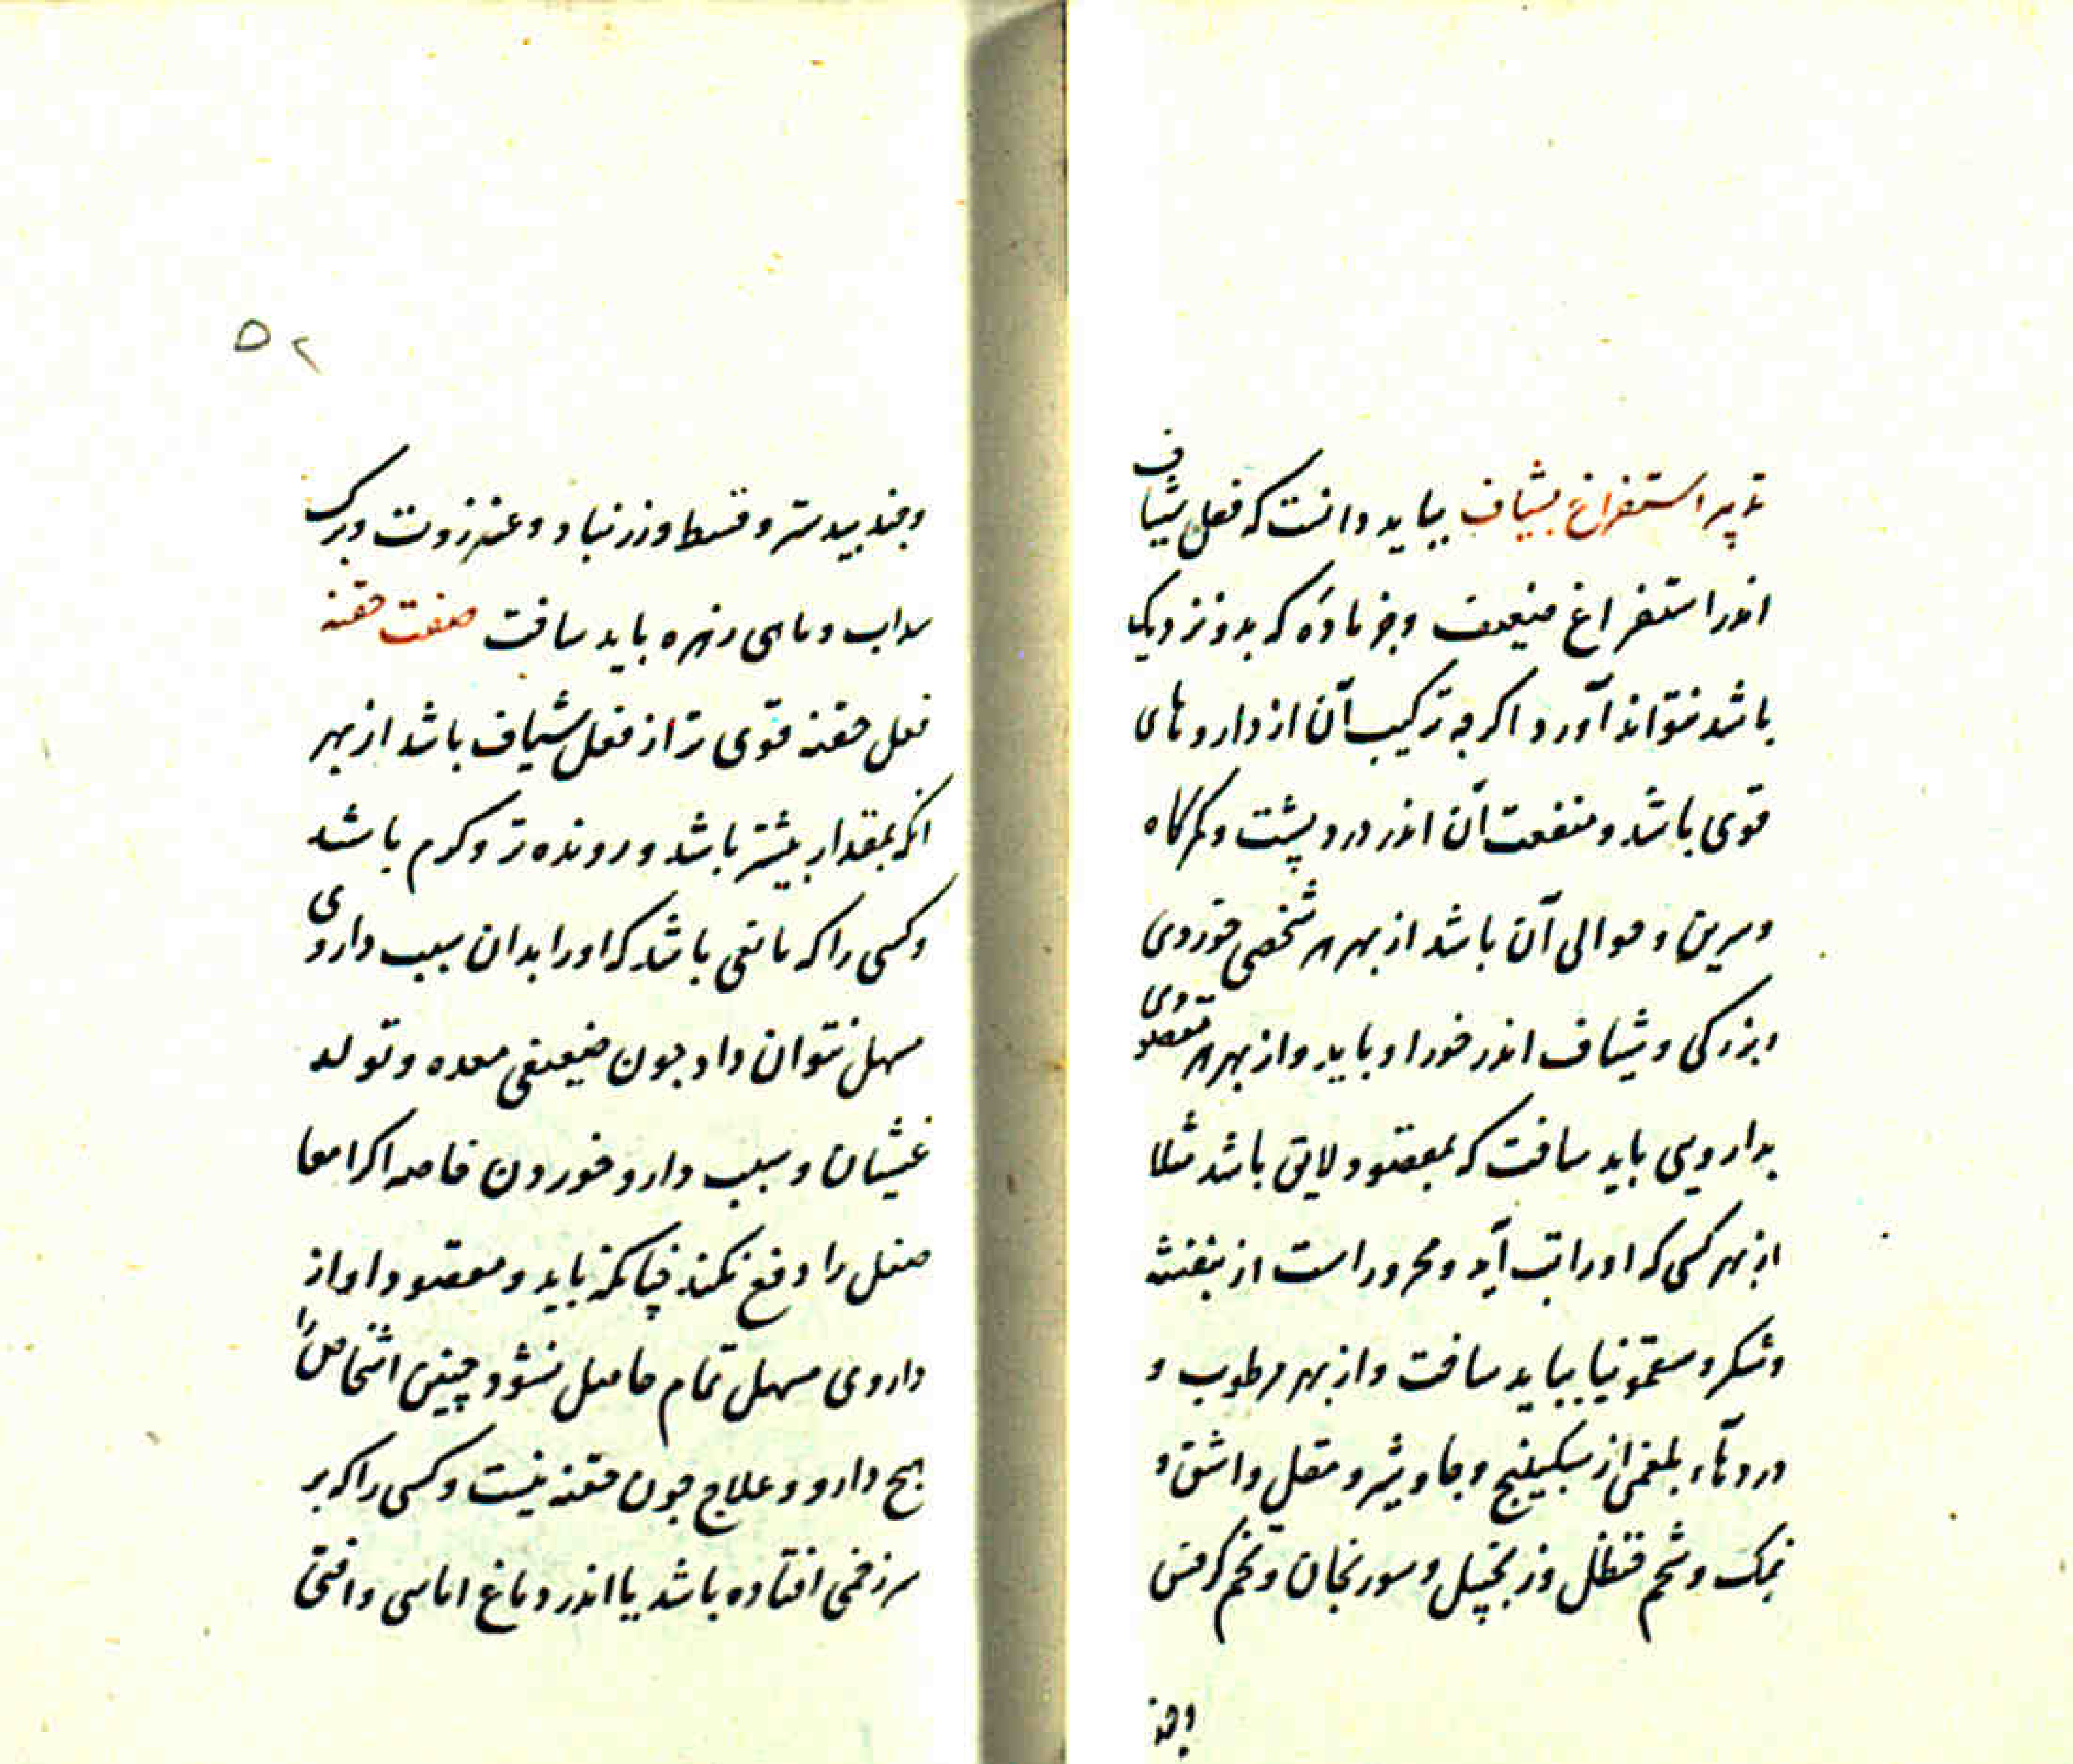 تدبیر استفراغ بشیاف بباید دانست که فعل شیاف
اندر استفراغ ضعیف و جز ماده که بدو نزدیک
باشد نتواند آورد اکرجه ترکیب آن از داروهای
قوی باشد و منفعت آن اندر درد پشت و کمرکاه
و سرین و حوالی آن باشد از بهر هر شخصی خوردی
و بزرکی و شیاف اندر خور او باید و از بهر هر مقصودی
بدارویی باید ساخت که بمقصود لایق باشد مثلا
از بهر کسی که او را تب آید و محرور است از بنفشه
و شکر و سقمونیا بباید ساخت و از بهر مرطوب و
دردهاء بلغمی از سکبینج و جاوشیر و مقل و اشق و
نمک و شحم حنظل و زنجبیل و سورنجان و تخم کرفس
وجند
۵۲
وجند بیدستر و قسط و زرنباد و عنزروت و برک
سداب و ماهی زهره باید ساخت صفت حقنه
فعل حقنه قوی تر از فعل شیاف باشد از بهر
انکه بمقدار بیشتر باشد و رونده تر و کرم باشد
و کسی را که مانعی باشد که او را بدان سبب داروی
مسهل نتوان داد جون ضعیفی معده و تولد
غشیان و سبب دارو خوردن خاصه اکر امعا
صفل را دفع نکند چنانکه باید و مقصود او از
داروی مسهل تمام حاصل نشود چنین اشخاص را
هیج دارو و علاج جون حقنه نیست و کسی را که بر
سر زخمی افتاده باشد یا اندر دماغ اماسی و افتی